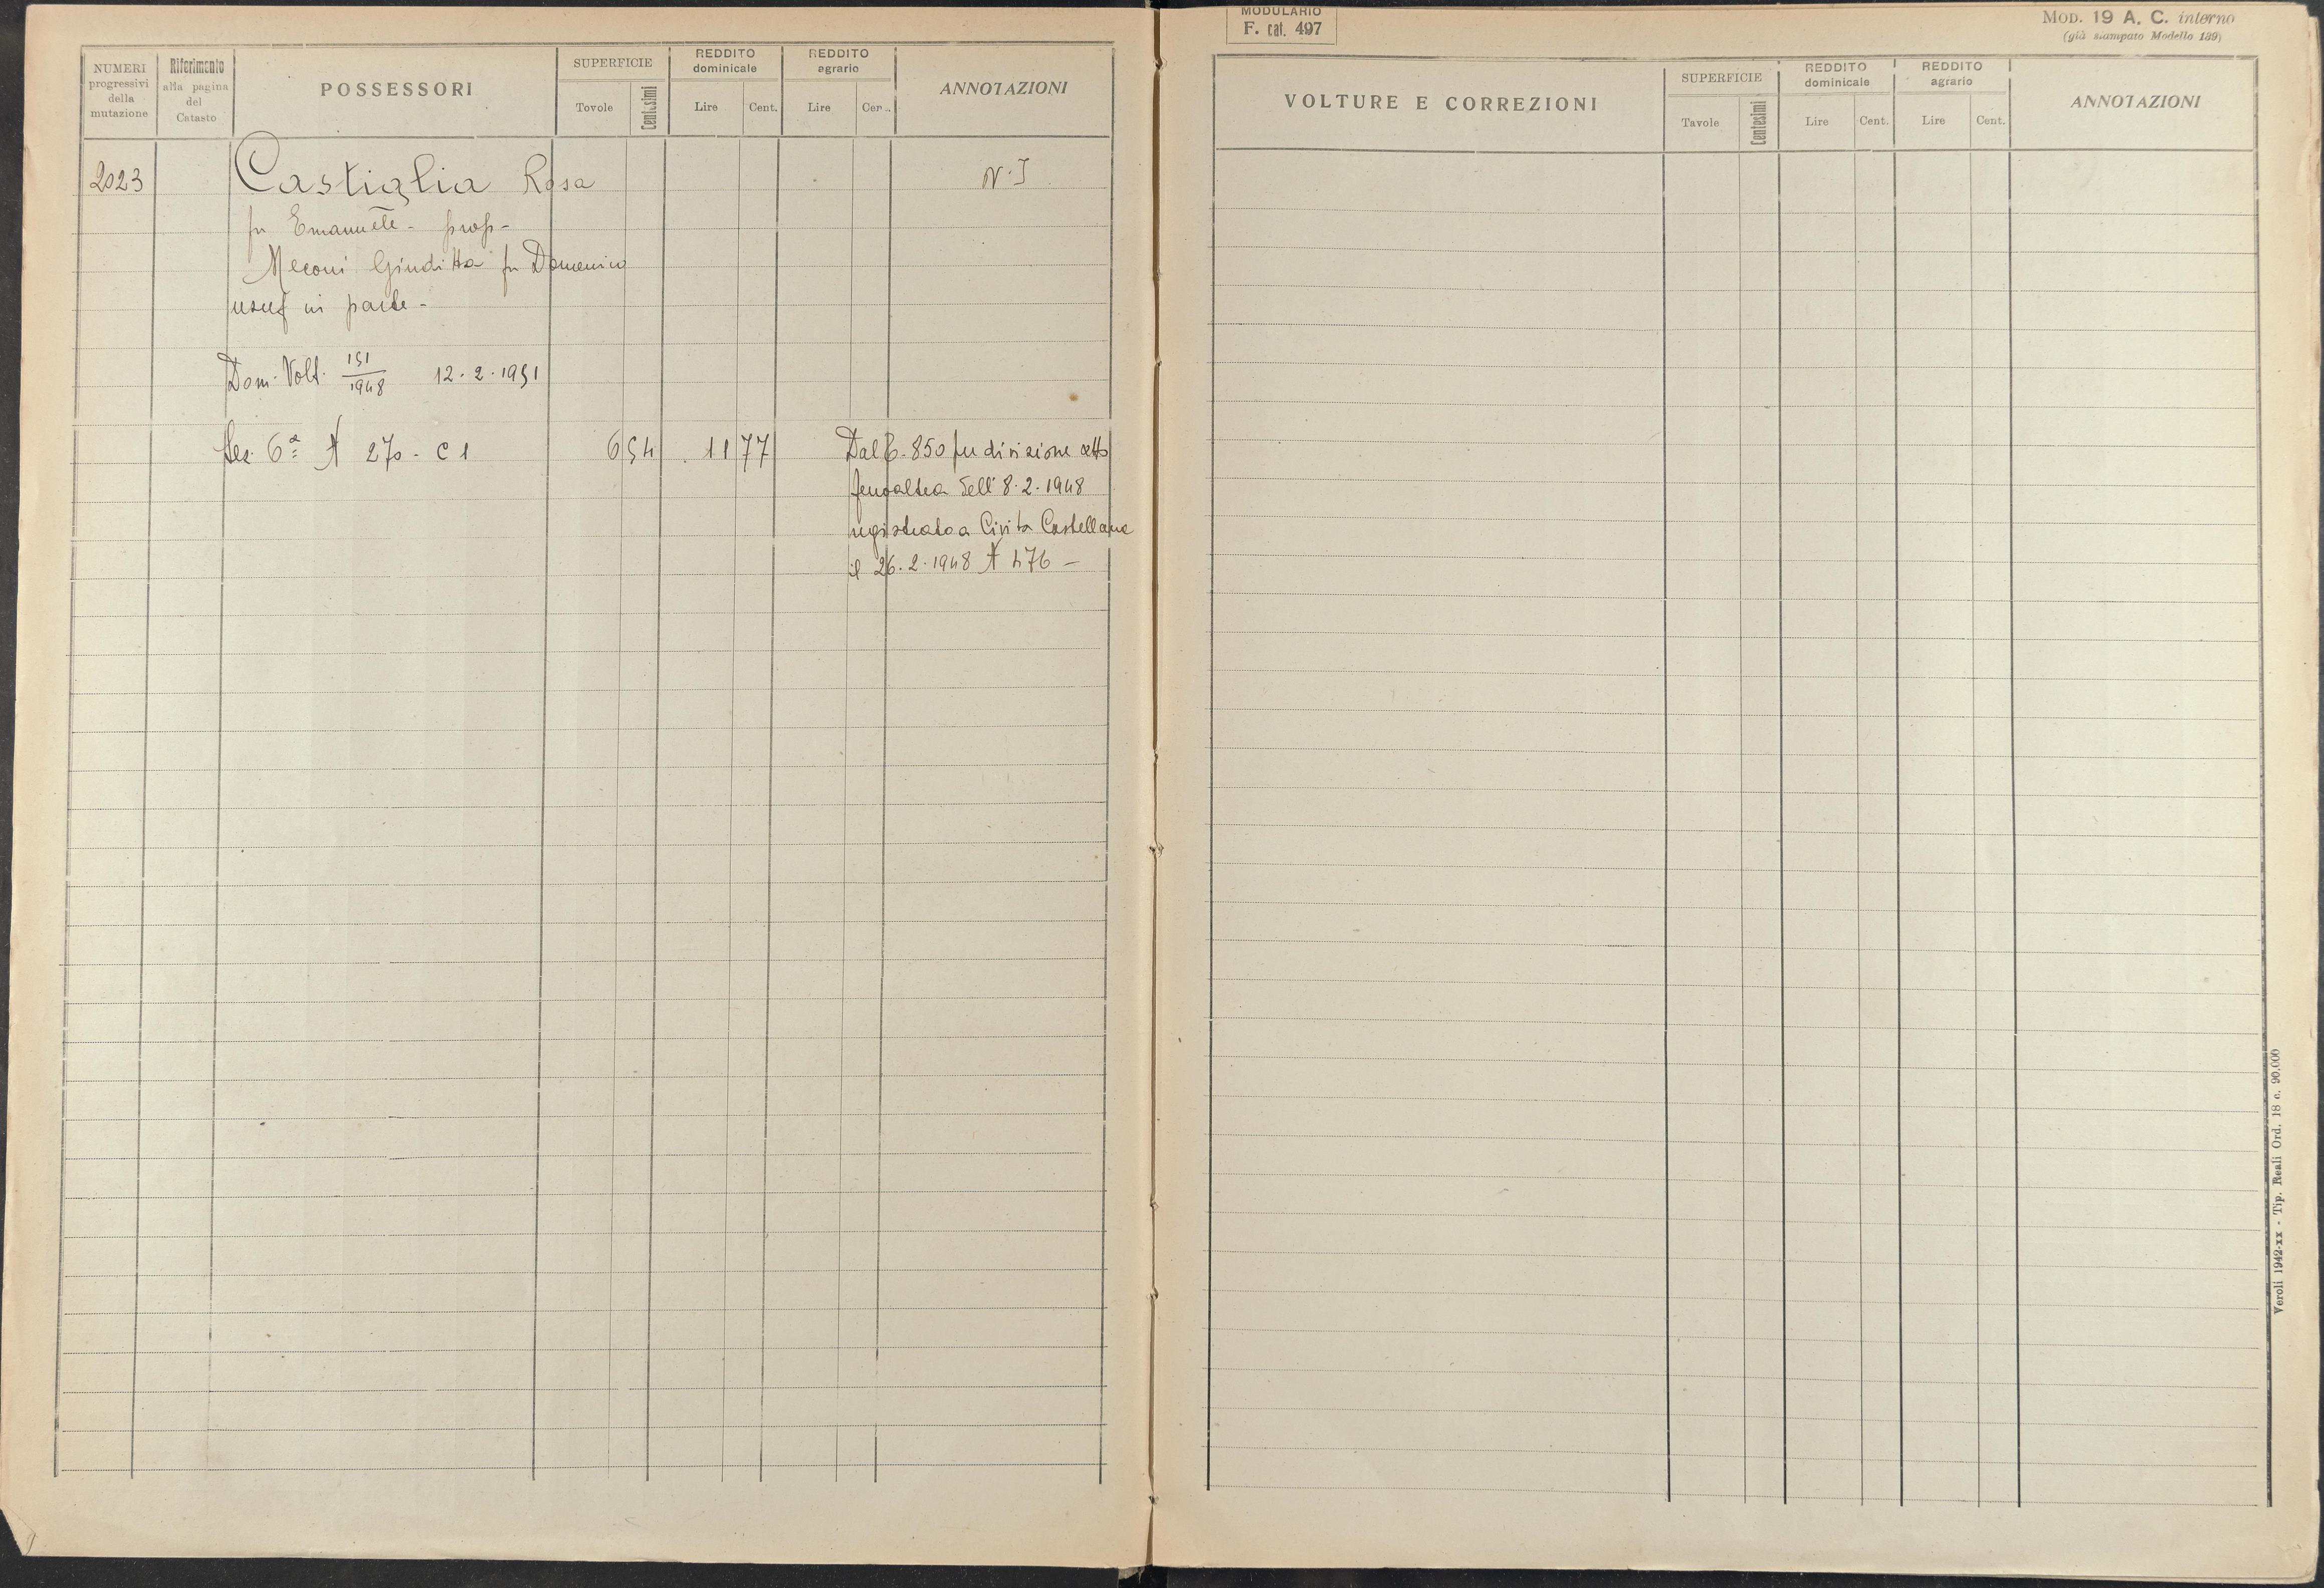 NUMERI
progressivi
della
mutazione
Riferimento
alla pagina
del
Catasto
POSSESSORI
SUPERFICIE
Tovole
Centesimi
REDDITO
dominicale
Lire
Cent.
REDDITO
agrario
Lire
Cen..
ANNOTAZIONI
2023
Castiglia Rosa
N. I
fu Emanuele - prop -
Meconi Giuditta fu Domenico
usuf in parte -
Dom. Volt. 151/1948 12.2.1951
Sez. 6ª N 270 - C 1
6 54
11 77
Dal P. 850 per divisione atto
Fenoaltea dell' 8.2.1948
registrato a Civita Castellana
il 26.2.1948 N 476 -
MODULARIO
F. cat. 497
MOD. 19 A. C. interno
(già stampato Modello 139)
VOLTURE E CORREZIONI
SUPERFICIE
Tavole
Centesimi
REDDITO
dominicale
Lire
Cent.
REDDITO
agrario
Lire
Cent.
ANNOTAZIONI
Veroli 1942-XX - Tip. Reali Ord. 18 c. 90.000